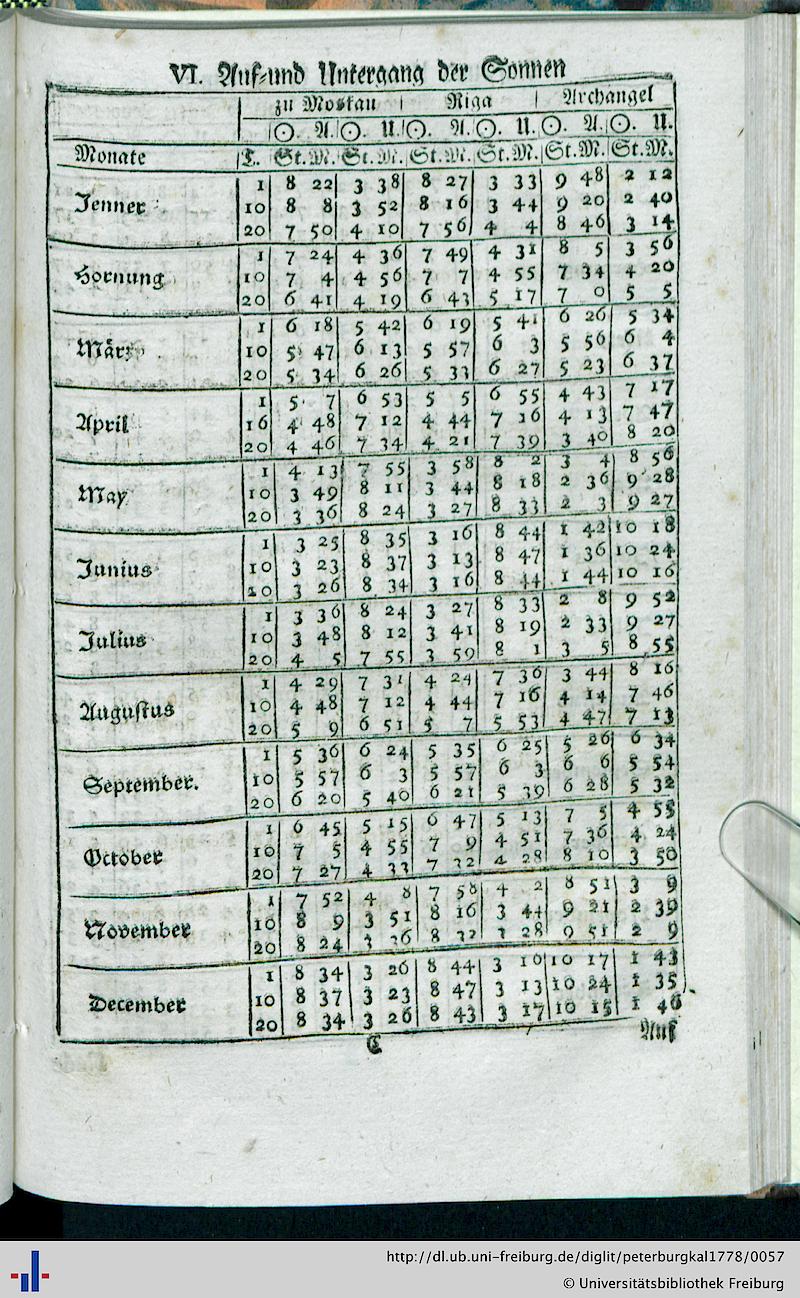 VI. Auf- und Untergang der Sonnen
zu Moskau | Riga | Archangel
☉. A. ☉. U. ☉. A. ☉. U. ☉. A. ☉. U.
Monate T. St. M. St. M. St. M. St. M. St. M. St. M.
1 8 22 3 38 8 27 3 33 9 48 2 12
Jenner 10 8 8 3 52 8 16 3 44 9 20 2 40
20 7 50 4 10 7 56 4 4 8 46 3 14
1 7 24 4 36 7 49 4 31 8 5 3 56
Hornung 10 7 4 4 56 7 7 4 55 7 34 4 20
20 6 41 4 19 6 43 5 17 7 0 5 5
1 6 18 5 42 6 19 5 41 6 26 5 34
März 10 5 47 6 13 5 57 6 3 5 56 6 4
20 5 34 6 26 5 33 6 27 5 23 6 37
1 5 7 6 53 5 5 6 55 4 43 7 17
April 16 4 48 7 12 4 44 7 16 4 13 7 47
20 4 46 7 34 4 21 7 39 3 40 8 20
1 4 13 7 55 3 58 8 2 3 4 8 56
May 10 3 49 8 11 3 44 8 18 2 36 9 28
20 3 36 8 24 3 27 8 33 2 3 9 27
1 3 25 8 35 3 16 8 44 1 42 10 18
Junius 10 3 23 8 37 3 13 8 47 1 36 10 24
20 3 26 8 34 3 16 8 44 1 44 10 16
1 3 36 8 24 3 27 8 33 2 8 9 52
Julius 10 3 48 8 12 3 41 8 19 2 33 9 27
20 4 5 7 55 3 59 8 1 3 5 8 55
1 4 29 7 31 4 24 7 36 3 44 8 16
Augustus 10 4 48 7 12 4 44 7 16 4 14 7 46
20 5 9 6 51 5 7 5 53 4 47 7 13
1 5 36 6 24 5 35 6 25 5 26 6 34
September. 10 5 57 6 3 5 57 6 3 6 6 5 54
20 6 20 5 40 6 21 5 39 6 28 5 32
1 6 45 5 15 6 47 5 13 7 5 4 55
October 10 7 5 4 55 7 9 4 51 7 36 4 24
20 7 27 4 33 7 32 4 28 8 10 3 50
1 7 52 4 8 7 58 4 2 8 51 3 9
November 10 8 9 3 51 8 16 3 44 9 21 2 39
20 8 24 3 36 8 32 3 28 9 51 2 9
1 8 34 3 26 8 44 3 10 10 17 1 43
December 10 8 37 3 23 8 47 3 13 10 24 1 35
20 8 34 3 26 8 43 3 17 10 15 1 46
C Auf
http://dl.ub.uni-freiburg.de/diglit/peterburgkal1778/0057
© Universitätsbibliothek Freiburg